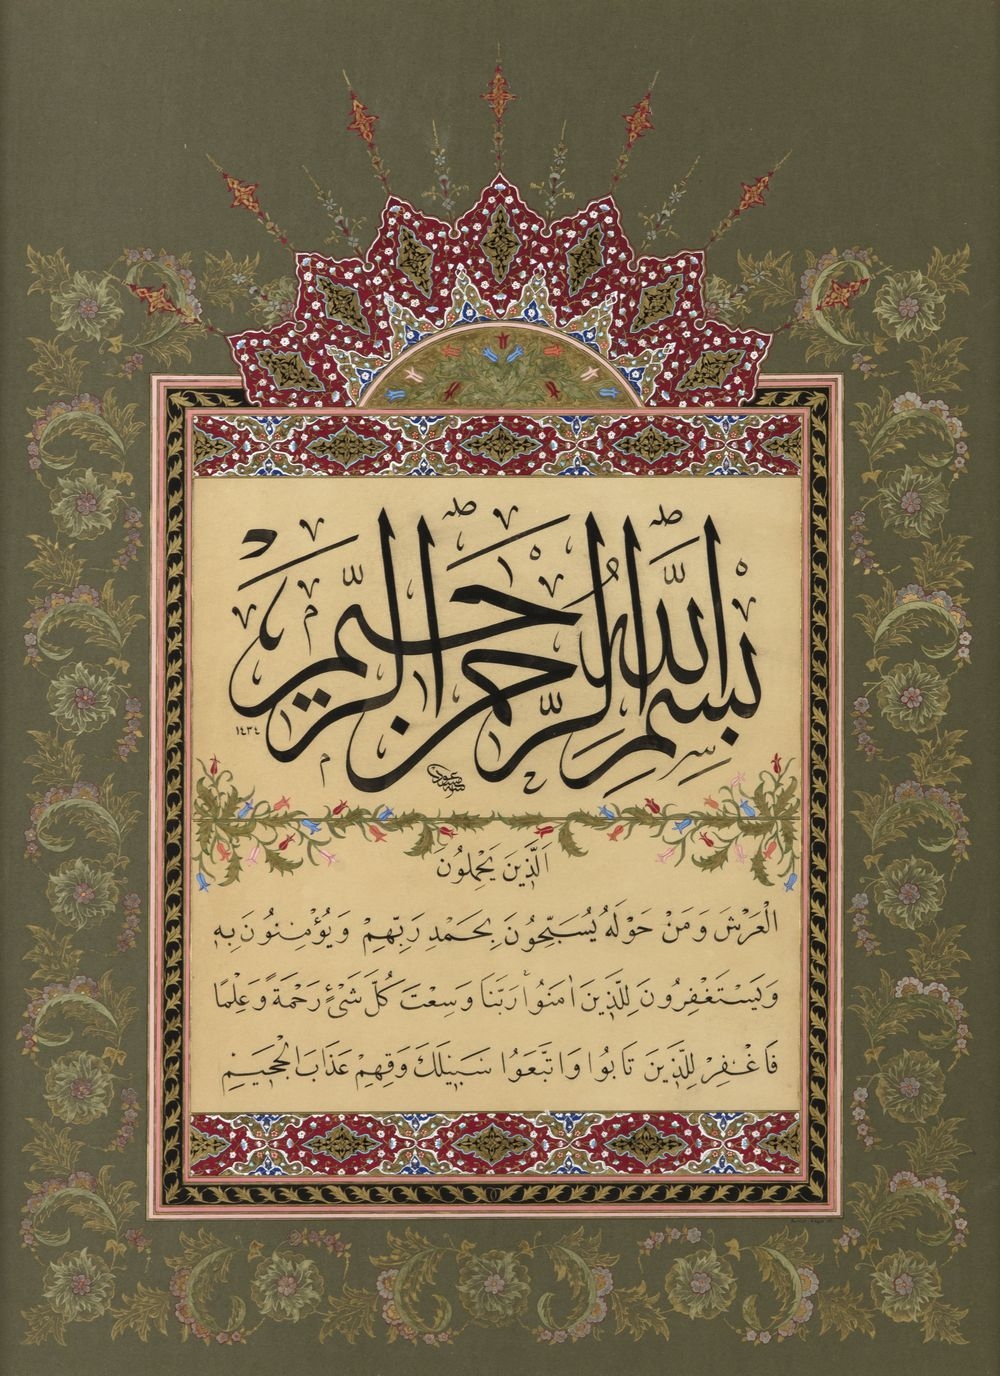 بِسْمِ اللّٰهِ الرَّحْمٰنِ الرَّحِيمِ
١٤٣٤
اَلَّذِينَ يَحْمِلُونَ
الْعَرْشَ وَمَنْ حَوْلَهُ يُسَبِّحُونَ بِحَمْدِ رَبِّهِمْ وَيُؤْمِنُونَ بِهِ
وَيَسْتَغْفِرُونَ لِلَّذِينَ اٰمَنُوا رَبَّنَا وَسِعْتَ كُلَّ شَىْءٍ رَحْمَةً وَعِلْمًا
فَاغْفِرْ لِلَّذِينَ تَابُوا وَاتَّبَعُوا سَبِيلَكَ وَقِهِمْ عَذَابَ الْجَحِيمِ